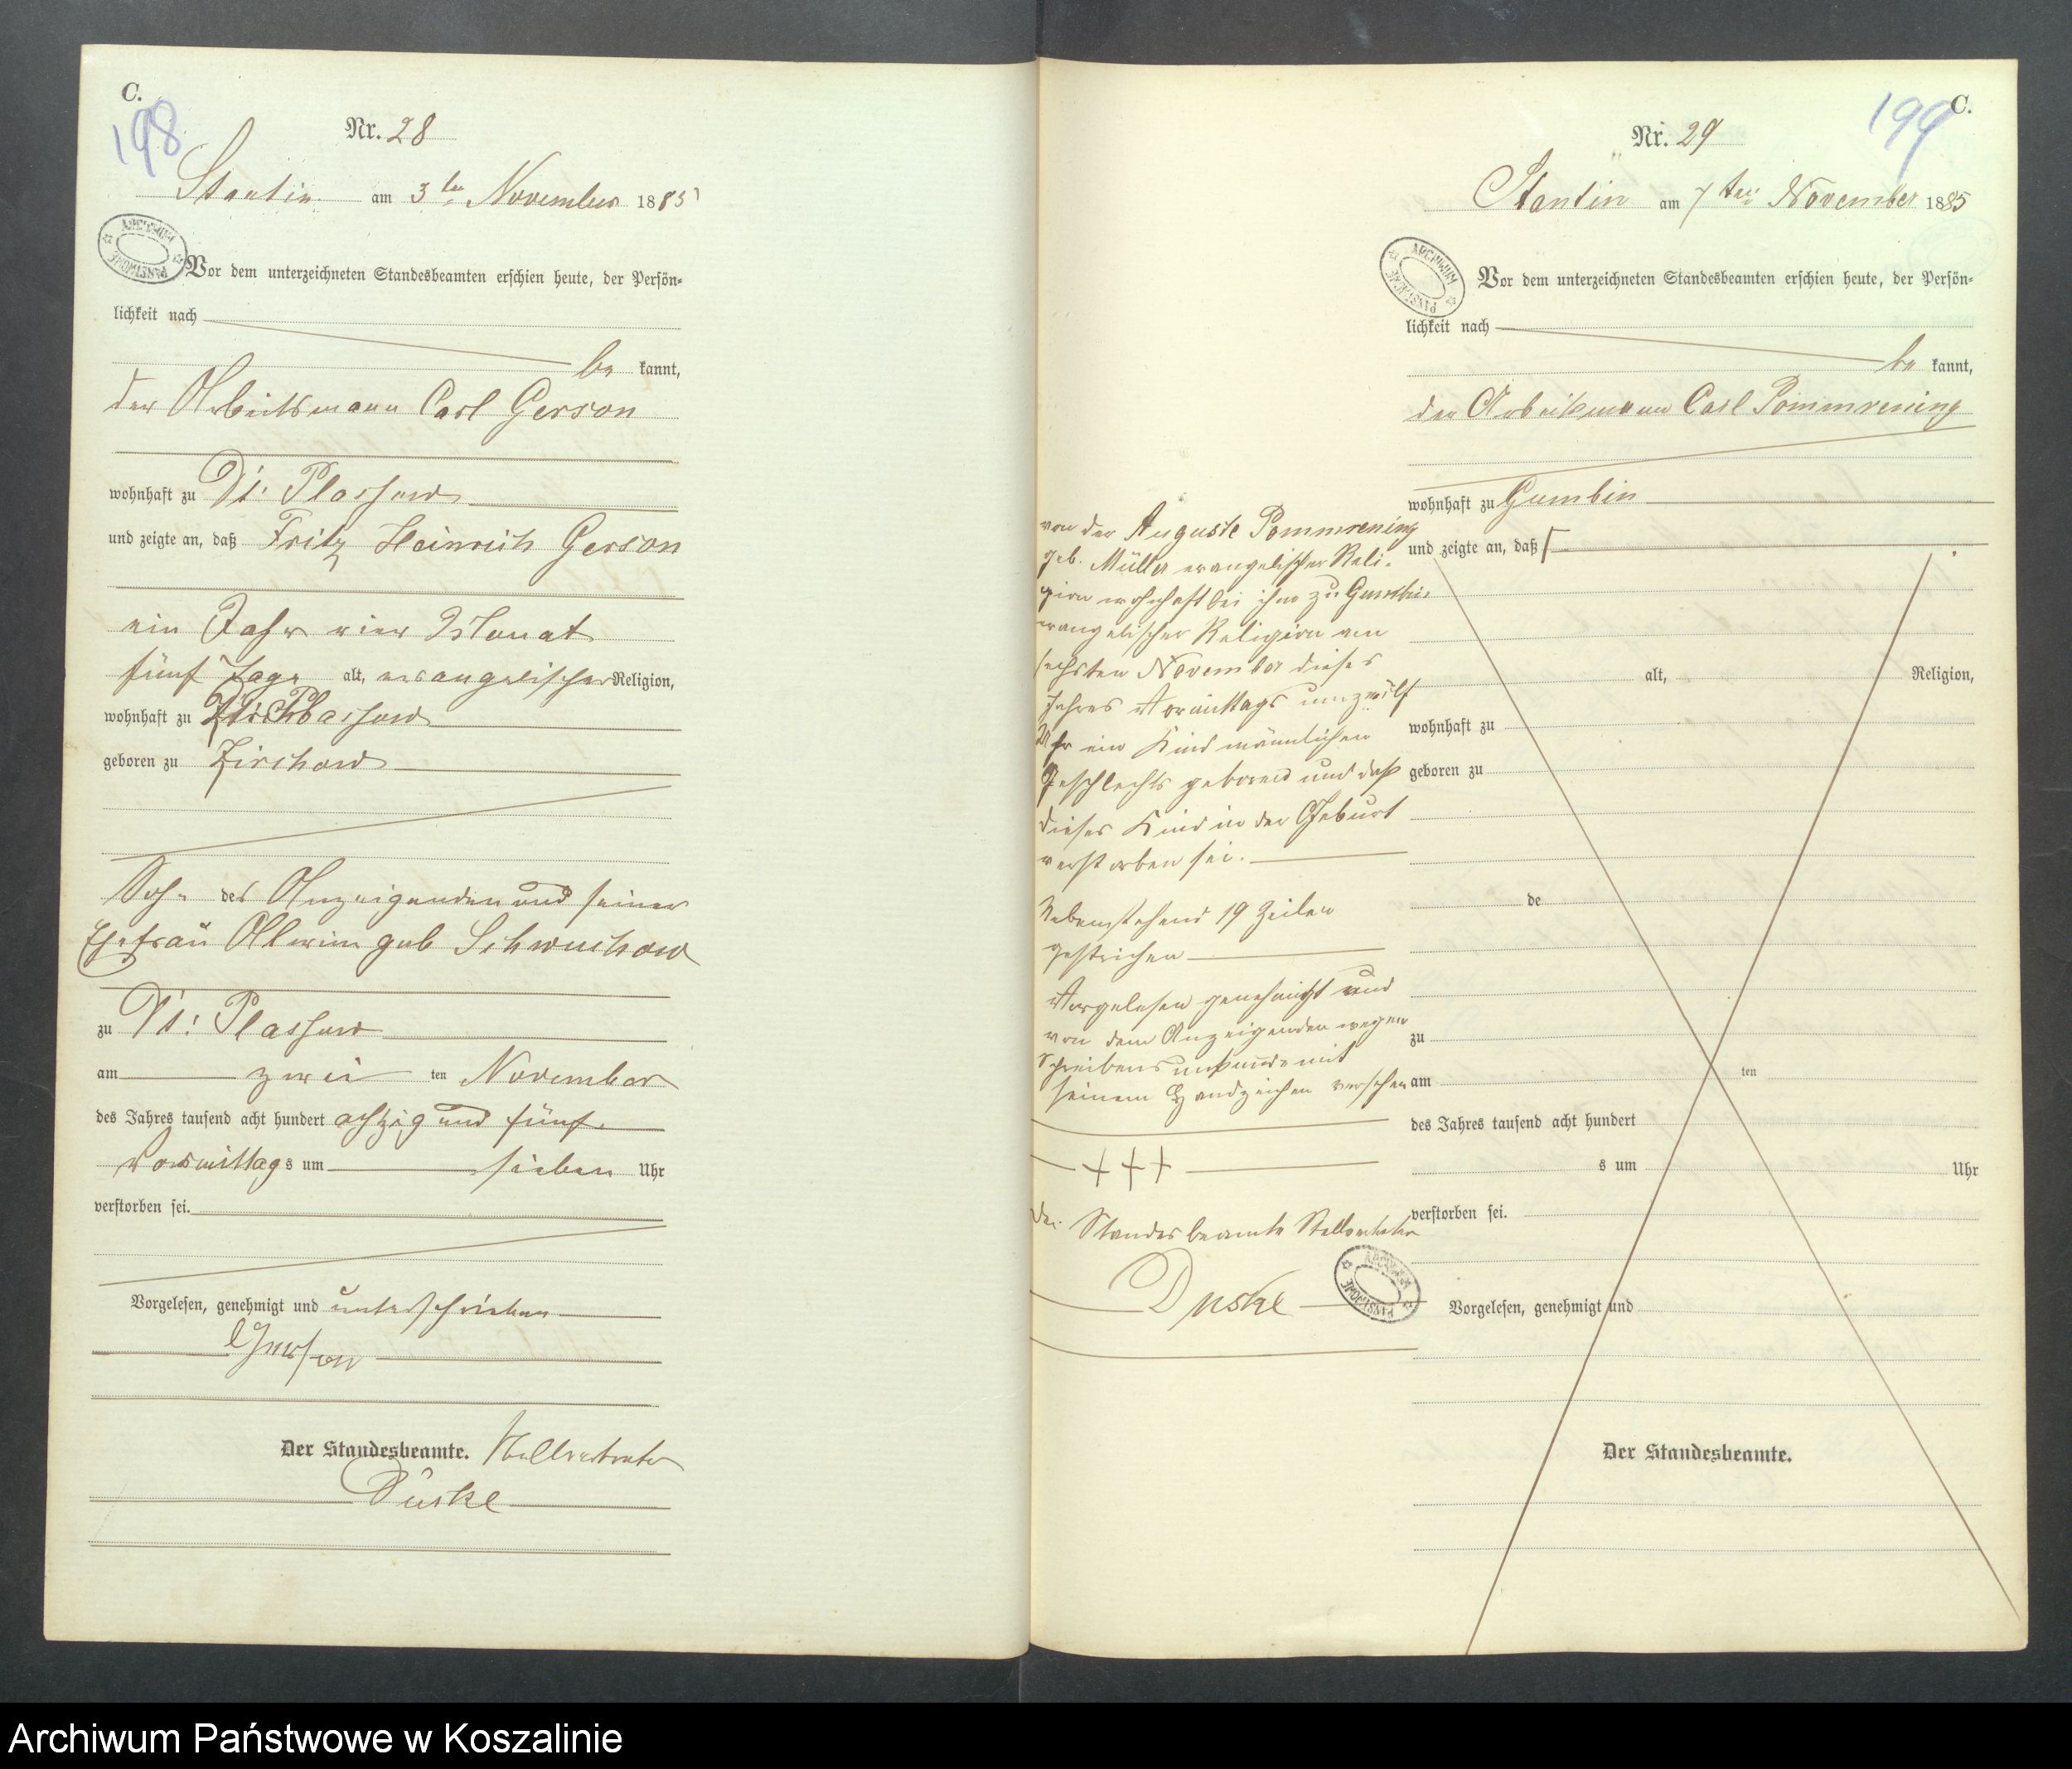 C.
198
Nr. 28
Stantin am 3ten November 1885
ARCHIWUM PAŃSTWOWE
Vor dem unterzeichneten Standesbeamten erschien heute, der Persön-
lichkeit nach
be kannt,
der Arbeitsmann Carl Gerson
wohnhaft zu Dt: Plassow
und zeigte an, daß Fritz Heinrich Gerson
ein Jahr vier Monat
fünf Tage alt, evangelischer Religion,
wohnhaft zu
geboren zu Zirchow
Sohn des Anzeigenden und seiner
Ehefrau Alwine geb Schwuchow
zu Dt: Plassow
am zwei ten November
des Jahres tausend acht hundert achtzig und fünf
Vormittags um sieben Uhr
verstorben sei.
Vorgelesen, genehmigt und unterschrieben
C Gerson
Der Standesbeamte. Stellvertreter
Duske
C.
199
Nr. 29
Stantin am 7ten November 1885
ARCHIWUM PAŃSTWOWE
Vor dem unterzeichneten Standesbeamten erschien heute, der Persön-
lichkeit nach
be kannt,
der Arbeitsmann Carl Pommrening
wohnhaft zu Gumbin
und zeigte an, daß
alt, Religion,
wohnhaft zu
geboren zu
de
zu
am ten
des Jahres tausend acht hundert
s um Uhr
verstorben sei.
Vorgelesen, genehmigt und
Der Standesbeamte.
von der Auguste Pommrening
geb. Müller evangelischer Reli-
gion wohnhaft bei ihm zu Gumbin
evangelischer Religion am
sechsten November dieses
Jahres Vormittags um zwölf
Uhr ein Kind männlichen
Geschlechts geboren und daß
dieses Kind in der Geburt
verstorben sei.
Nebenstehend 19 Zeilen
gestrichen
Vorgelesen genehmigt und
von dem Anzeigenden wegen
Schreibensunkunde mit
seinem Handzeichen versehen
+++
Der Standesbeamte Stellvertreter
Duske
ARCHIWUM PAŃSTWOWE
Archiwum Państwowe w Koszalinie